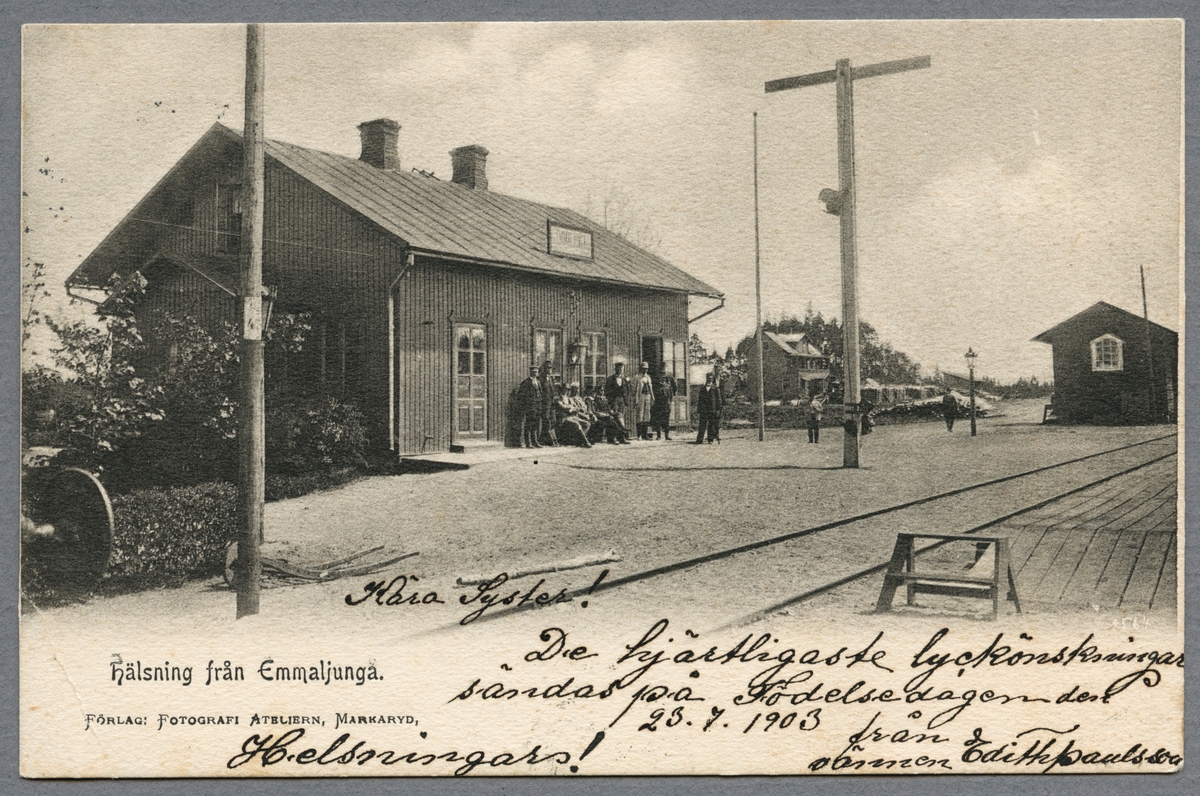 Kära Syster!
De hjärtligaste lyckönskningar
sändas på Födelsedagen den
23. 7. 1903
från
vännen Edith Paulsson
Helsningars!
Hälsning från Emmaljunga.
Förlag: Fotografi Ateliern, Markaryd,